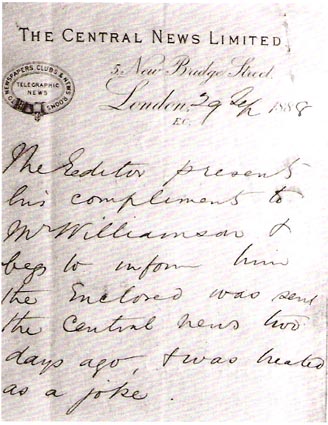 THE CENTRAL NEWS LIMITED
5, New Bridge Street.
TO NEWSPAPERS, CLUBS & NEWS ROOMS
TELEGRAPHIC
NEWS
London, 29 Sep 1888
E.C.
The Editor presents
his compliment to
Mr Williamson &
begs to inform him
the Enclosed was sent
the Central News two
days ago, & was treated
as a joke.